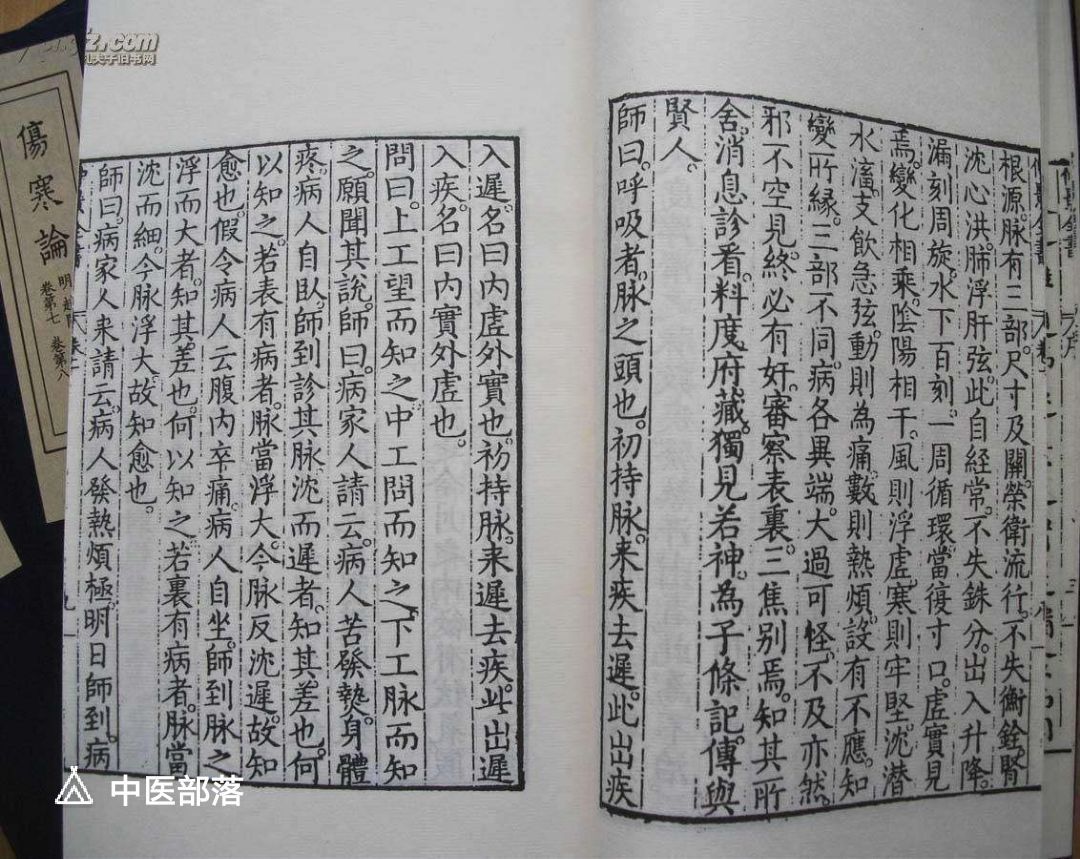 根源。脉有三部。尺寸及關。榮衛流行。不失衡銓。腎
沈心洪。肺浮肝弦。此自經常。不失銖分。出入升降。
漏刻周旋。水下百刻。一周循環。當復寸口。虛實見
焉。變化相乘。陰陽相干。風則浮虛。寒則牢堅。沈潜
水滀。支飲急弦。動則為痛。數則熱煩。設有不應。知
變所縁。三部不同。病各異端。大過可怪。不及亦然。
邪不空見。終必有奸。審察表裏。三焦別焉。知其所
舍。消息診看。料度府藏。獨見若神。為子條記。傳與
賢人。
師曰。呼吸者。脉之頭也。初持脉。来疾去遲。此出疾
入遲。名曰内虛外實也。初持脉。来遲去疾。此出遲
入疾。名曰内實外虛也。
問曰。上工望而知之。中工問而知之。下工脉而知
之。願聞其說。師曰。病家人請云。病人苦發熱。身體
疼。病人自臥。師到診其脉。沈而遲者。知其差也。何
以知之。若表有病者。脉當浮大。今脉反沈遲。故知
愈也。假令病人云腹内卒痛。病人自坐。師到脉之
浮而大者。知其差也。何以知之。若裏有病者。脉當
沈而細。今脉浮大。故知愈也。
師曰。病家人来請云。病人發熱煩極。明日師到。病
九
傷寒論
明趙
卷第七 卷第八
夫子旧书网
中医部落